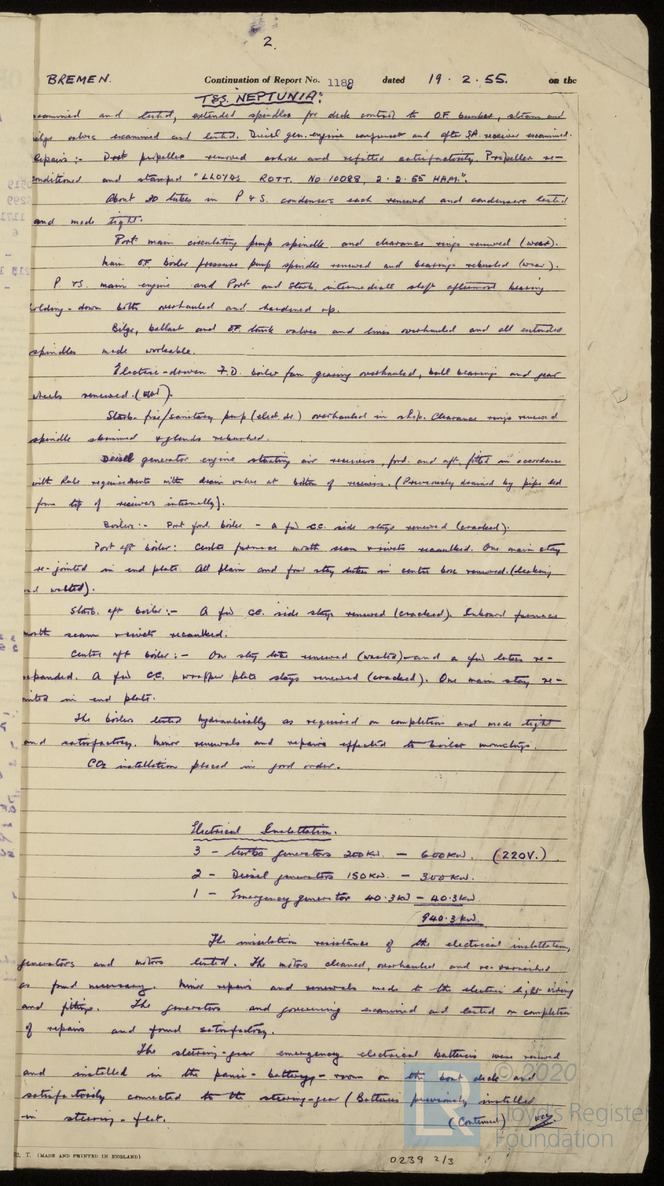 2.
BREMEN. Continuation of Report No. 1188 dated 19 . 2 . 55. on the
TSS. NEPTUNIA:
examined and tested, extended spindles for deck control to O.F. bunker, steam and
bilge valves examined and tested. Diesel gen. engine and after S.A. receiver examined.
Repairs :- Port propeller removed ashore and refitted satisfactorily. Propeller re-
conditioned and stamped "LLOYDS ROTT. No 10088, 2.2.55 HAM.".
About 20 tubes in P & S. condensers each renewed and condensers tested
and made tight.
Port main circulating pump spindle and clearance rings renewed (wear).
Main O.F. boiler pressure pump spindle renewed and bearings rebushed (wear).
P & S. main engine and Port and Starb. intermediate shaft aftermost bearing
holding-down bolts overhauled and hardened up.
Bilge, ballast and O.F. tank valves and lines overhauled and all extended
spindles made workable.
Electric-driven F.D. boiler fan gearing overhauled, ball bearings and gear
wheels renewed.
Starb. fire/sanitary pump (elect. dr.) overhauled in shop. Clearance rings renewed
spindle skimmed & glands rebushed.
Diesel generator engine starting air receivers, ford. and aft, fitted in accordance
with Rule requirements with drain valve at bottom of receivers. (Previously drained by pipe led
from top of receivers internally).
Boilers :- Port ford. boiler - a few CC. side stays renewed (cracked).
Port aft boiler : Centre furnace mouth seam & rivets recaulked. One main stay
re-jointed in end plate. All plain and four stay tubes in centre box renewed. (leaking
and wasted).
Starb. aft boiler :- A few CC. side stays renewed (cracked). Inboard furnace
mouth seam & rivets recaulked.
Centre aft boiler :- One stay tube renewed (wasted) and a few tubes re-
expanded. A few CC. wrapper plate stays renewed (cracked). One main stay re-
jointed in end plate.
The boilers tested hydraulically as required on completion and made tight
and satisfactory. Minor renewals and repairs effected to boiler mountings.
CO2 installation placed in good order.
Electrical Installation.
3 - turbo generators 200KW. - 600KW. (220V.)
2 - Diesel generators 150KW. - 300KW.
1 - Emergency generator 40.3KW - 40.3KW.
940.3KW.
The insulation resistance of the electrical installation,
generators and motors tested. The motors cleaned, overhauled and re-varnished
as found necessary. Minor repairs and renewals made to the electric light wiring
and fittings. The generators and governing examined and tested on completion
of repairs and found satisfactory.
The steering-gear emergency electrical batteries were renewed
and installed in the panic-battery-room on the boat deck and
satisfactorily connected to the steering-gear (Batteries previously installed
in steering-flat. (Continued)
T. (MADE AND PRINTED IN ENGLAND)
0239 2/3
© 2020
LR
Lloyd's Register
Foundation